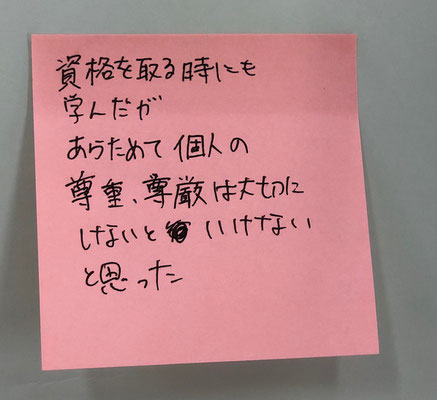 資格を取る時にも
学んだが
あらためて個人の
尊重、尊厳は大切に
しないといけない
と思った